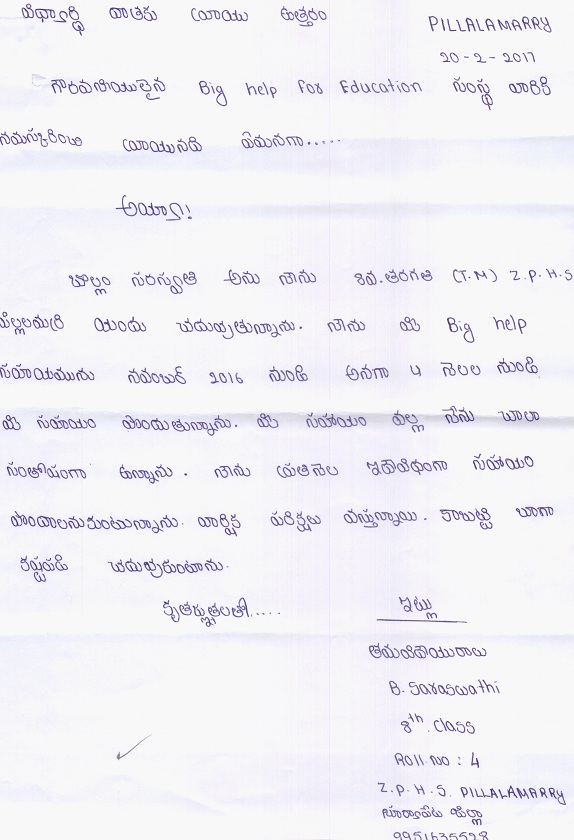 విద్యార్థి దాతకు వ్రాయు ఉత్తరం
PILLALAMARRY
20-2-2017
గౌరవనీయులైన Big help For Education సంస్థ వారికి
నమస్కరించి వ్రాయునది ఏమనగా.....
అయ్యా!
బొల్లం సరస్వతి అను నేను 8వ.తరగతి (T.M) Z.P.H.S
పిల్లలమర్రి యందు చదువుతున్నాను. నేను ఈ Big help
సహాయమును నవంబర్ 2016 నుండి అనగా 4 నెలల నుండి
ఈ సహాయం పొందుతున్నాను. ఈ సహాయం వల్ల నేను చాలా
సంతోషంగా ఉన్నాను. నేను ప్రతినెల ఇదేవిధంగా సహాయం
పొందాలనుకుంటున్నాను. వార్షిక పరీక్షలు వస్తున్నాయి. కాబట్టి బాగా
కష్టపడి చదువుకుంటాను.
కృతజ్ఞతలతో..... ఇట్లు
తమ విధేయురాలు
B. Saraswathi
8th. Class
Roll no : 4
Z.P.H.S. PILLALAMARRY
సూర్యాపేట జిల్లా
9951635528